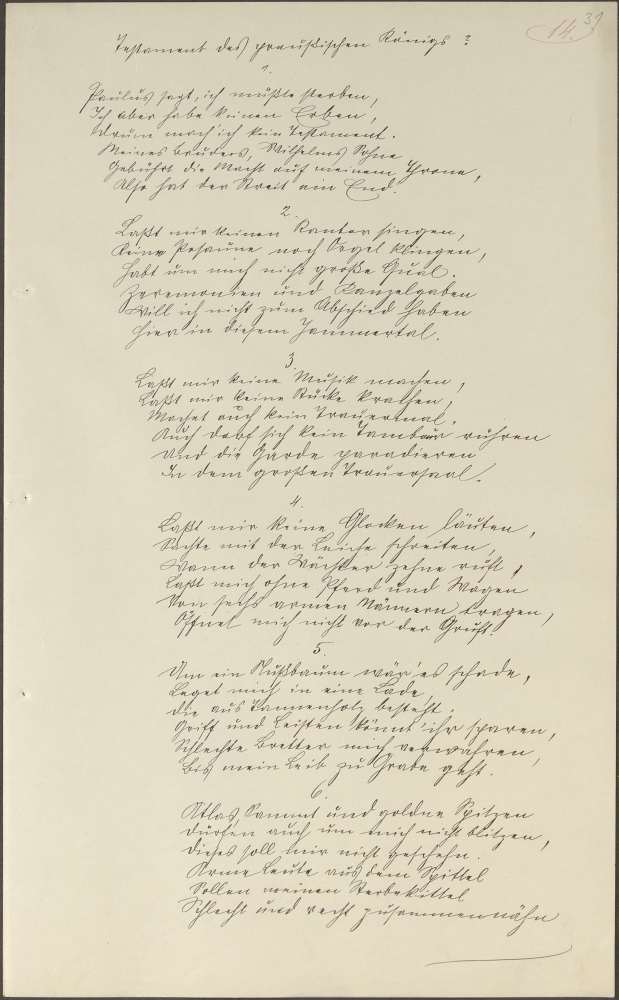 39
14.
Testament des preußischen Königs?
1.
Paulus sagt, ich müßte sterben,
Ich aber habe keinen Erben,
Drum mach ich kein Testament.
Meines Bruders, Wilhelms Sohne
Gebührt die Macht auf meinem Throne,
Also hat der Streit ein End.
2.
Laßt mir keinen Kantor singen,
Keine Posaune noch Orgel klingen,
Habt um mich nicht große Qual.
Zeremonien und Kanzelgaben
Will ich nicht zum Abschied haben
Hier in diesem Jammertal.
3
Laßt mir keine Musik machen,
Laßt mir keine Stücke krachen,
Machet auch kein Trauermal,
Auch darf sich kein Tambur rühren
Und die Garde paradieren
In dem großen Trauersaal.
4.
Laßt mir keine Glocken läuten,
Sachte mit der Leiche schreiten,
Wann der Wächter zehne ruft,
Laßt mich ohne Pferd und Wagen
Von sechs armen Männern tragen,
Öffnet mich nicht vor der Gruft.
5.
Um ein Nußbaum wär' es schade,
Leget mich in eine Lade,
Die aus Tannenholz besteht.
Griff und Leisten könnt' ihr sparen,
Schlechte Bretter mich verwahren,
Bis mein Leib zu Grabe geht.
6.
Atlas, Sammt und goldne Spitzen
Dürfen auch um mich nicht blitzen,
Dieses soll mir nicht geschehn.
Arme Leute aus dem Spittel
Sollen meinen Sterbekittel
Schlecht und recht zusammennähn